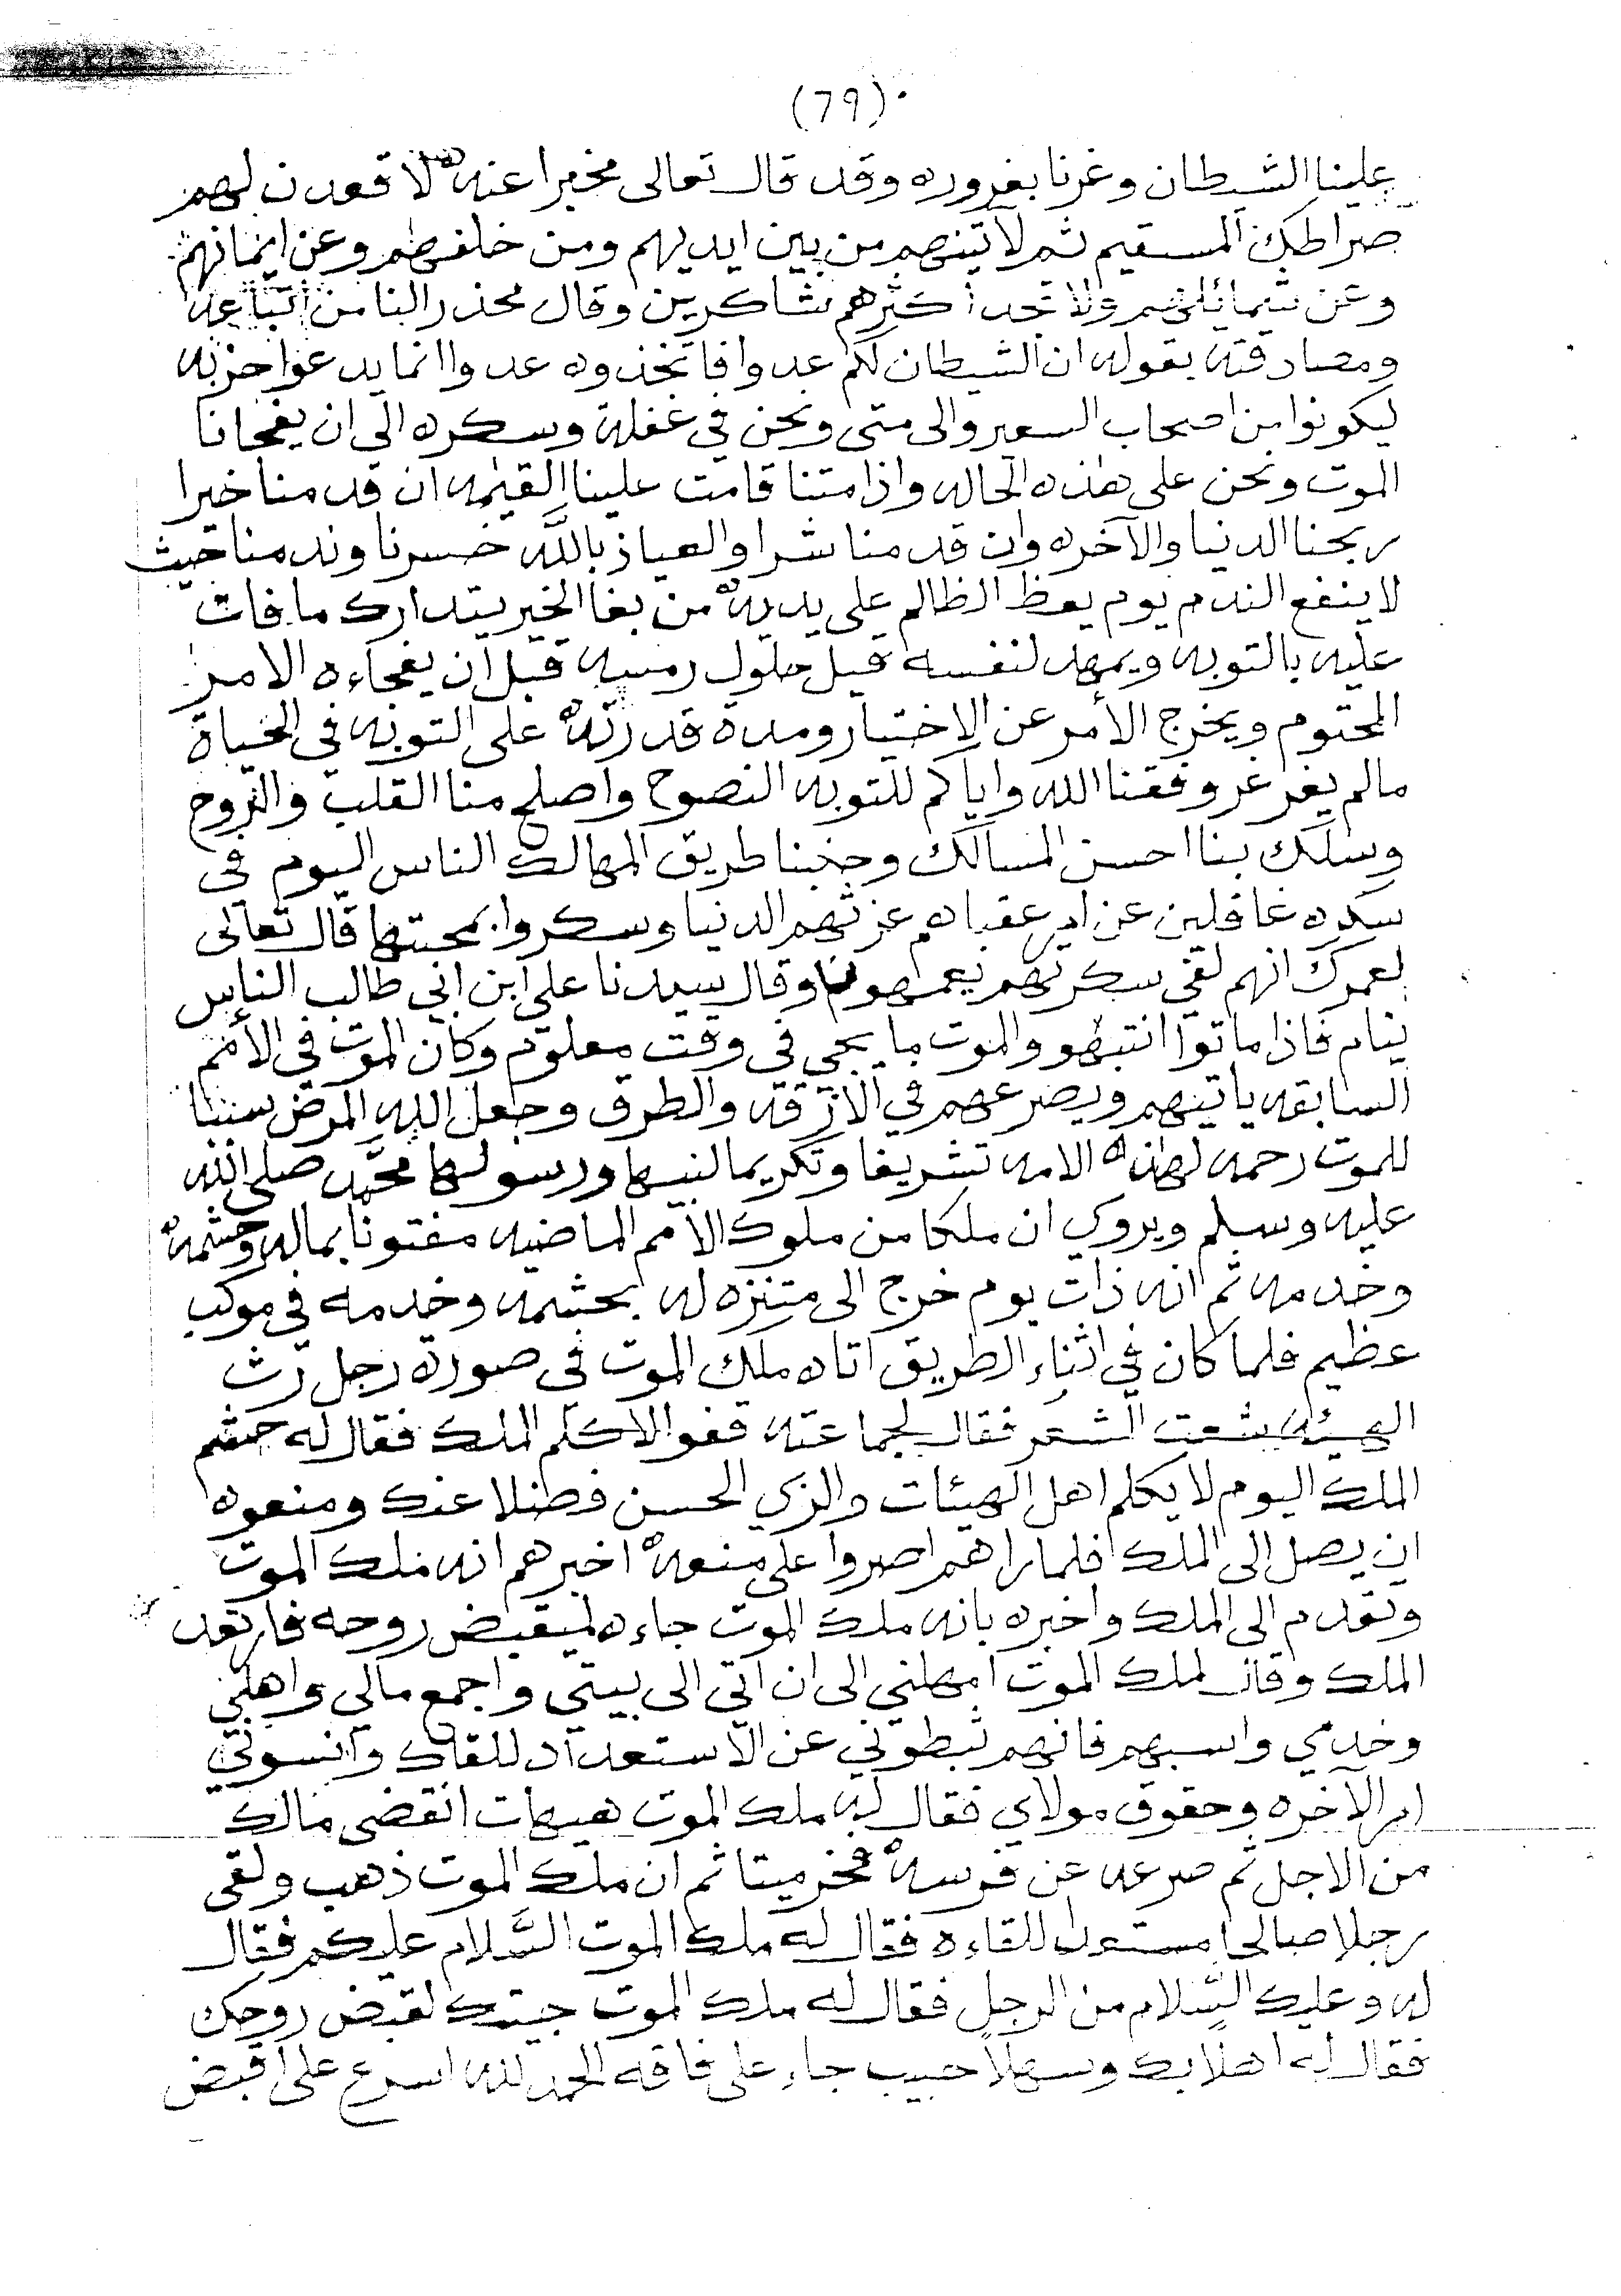 (79)
علينا الشيطان وغرنا بغروره وقد قال تعالى مخبرا عنه لاقعدن لهم
صراطك المسقيم ثم لآتينهم من بين ايديهم ومن خلفهم وعن ايمانهم
وعن شمائلهم ولا تجد أكثرهم شاكرين وقال محذر النا من اتباعه
ومصادقته بقوله ان الشيطان لكم عدوا فاتخذوه عدوا انما يدعوا حزبه
ليكونوا من اصحاب السعير والى متى ونحن في غفلة وسكره الى ان يفجانا
الموت ونحن على هذه الحاله واذا متنا قامت علينا القيمه ان قدمنا خيرا
ربحنا الدنيا والآخره وان قدمنا شرا والعياذ بالله خسرنا وندمنا حيث
لا ينفع الندم يوم يعظ الظالم على يديه من بغا الخير يتدارك ما فات
عليه بالتوبه ويمهد لنفسه قبل حلول رمسه قبل ان يفجاءه الامر
المحتوم ويخرج الأمر عن الاختيار ومدة قدرته على التوبه في الحياة
مالم يغرغر وفقنا الله واياكم للتوبه النصوح واصلح منا القلب والروح
وسلك بنا احسن المسالك وجنبنا طريق المهالك الناس اليوم في
سكره غافلين عن امر عقباهم غرتهم الدنيا وسكروا بمحبتها قال تعالى
لعمرك انهم لفي سكرتهم يعمهون وقال سيدنا علي ابن ابي طالب الناس
نيام فاذا ماتوا انتبهو والموت ما يجي في وقت معلوم وكان الموت في الأمم
السابقه ياتيهم ويصرعهم في الازقه والطرق وجعل الله المرض سببا
للموت رحمه لهذه الامه تشريفا وتكريما لنبيها ورسولها محمد صلى الله
عليه وسلم ويروي ان ملكا من ملوك الامم الماضيه مفتونا بماله وحشمه
وخدمه ثم انه ذات يوم خرج الى متنزه له بحشمه وخدمه في موكب
عظيم فلما كان في اثناء الطريق اتاه ملك الموت في صورة رجل رث
الهيئه شعث الشعر فقال لجماعته قفوا لاكلم الملك فقال له حشم
الملك اليوم لا يكلم اهل الهيئات والزي الحسن فضلا عنك ومنعوه
ان يصل الى الملك فلما راهم اصروا على منعه اخبرهم انه ملك الموت
وتقدم الى الملك واخبره بانه ملك الموت جاءه ليقبض روحه فارتعد
الملك وقال لملك الموت امهلني الى ان اتي الى بيتي واجمع مالي واهلي
وخدمي واسبهم فانهم ثبطوني عن الاستعداد للقاك وانسوني
امر الآخره وحقوق مولاي فقال له ملك الموت هيهات انقضى مالك
من الاجل ثم صرعه عن فرسه فخر ميتا ثم ان ملك الموت ذهب ولقي
رجلا صالحا مستعدا للقاءه فقال له ملك الموت السلام عليكم فقال
له وعليك السلام من الرجل فقال له ملك الموت جيتك لقبض روحك
فقال له اهلا بك وسهلا حبيب جاء على فاقه الحمد لله اسرع علي اقبض